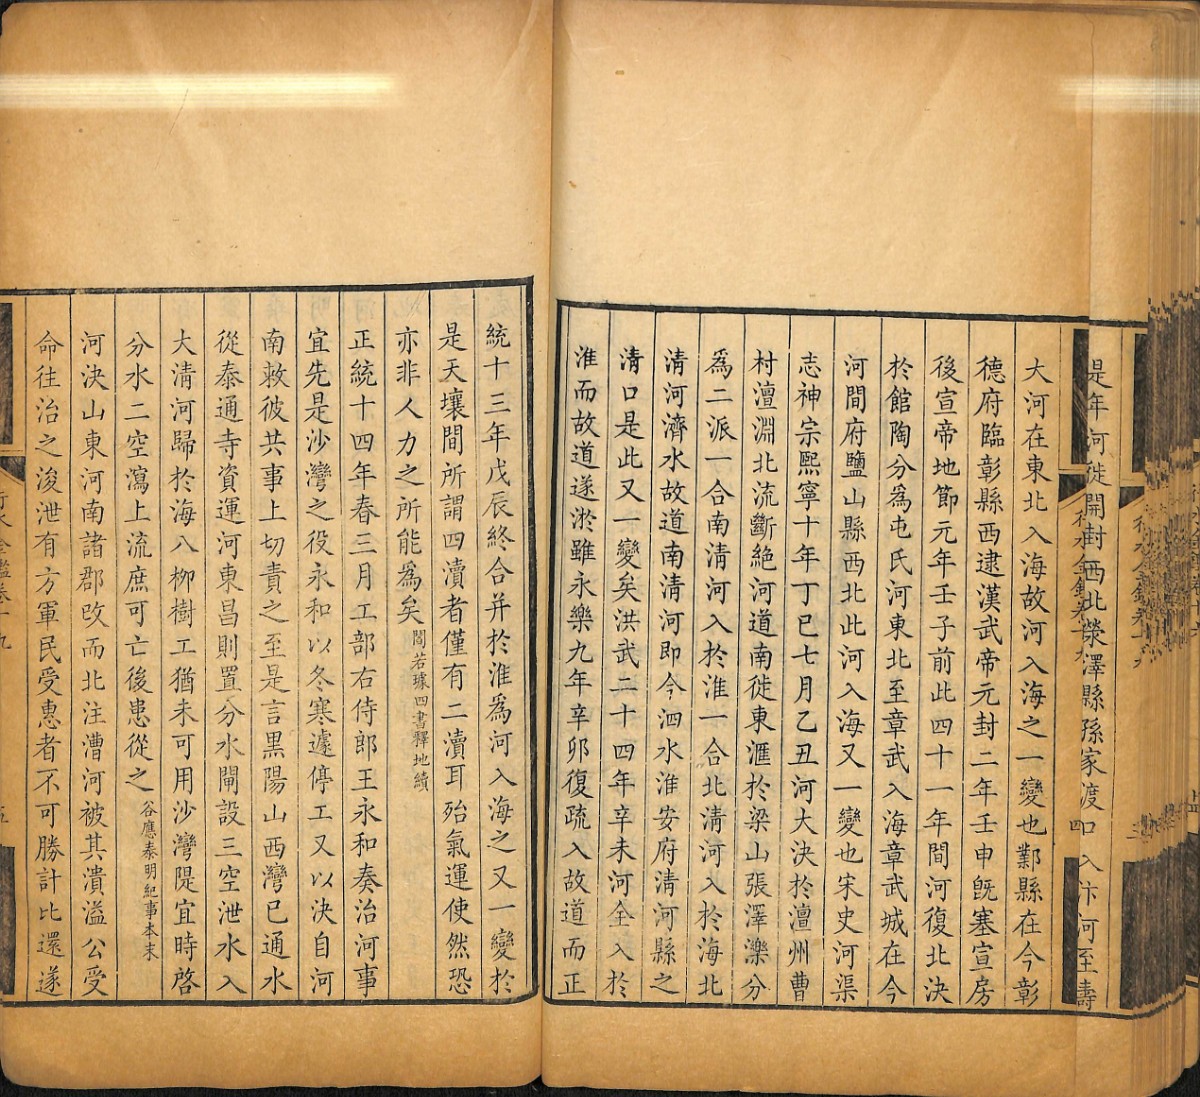 是年河徙開封西北滎澤縣孫家渡口入汴河至壽
大河在東北入海故河入海之一變也鄴縣在今彰
德府臨彰縣西逮漢武帝元封二年壬申旣塞宣房
後宣帝地節元年壬子前此四十一年間河復北決
於館陶分爲屯氏河東北至章武入海章武城在今
河間府鹽山縣西北此河入海又一變也宋史河渠
志神宗熙寧十年丁巳七月乙丑河大決於澶州曹
村澶淵北流斷絕河道南徙東滙於梁山張澤濼分
爲二派一合南清河入於淮一合北清河入於海北
清河濟水故道南清河即今泗水淮安府清河縣之
清口是此又一變矣洪武二十四年辛未河全入於
淮而故道遂淤雖永樂九年辛卯復疏入故道而正
統十三年戊辰終合并於淮爲河入海之又一變於
是天壤間所謂四瀆者僅有二瀆耳殆氣運使然恐
亦非人力之所能爲矣閻若璩四書釋地續
正統十四年春三月工部右侍郎王永和奏治河事
宜先是沙灣之役永和以冬寒遽停工又以決自河
南敕彼共事上切責之至是言黑陽山西灣已通水
從泰通寺資運河東昌則置分水閘設三空泄水入
大清河歸於海八柳樹工猶未可用沙灣隄宜時啓
分水二空瀉上流庶可亡後患從之谷應泰明紀事本末
河決山東河南諸郡改而北注漕河被其潰溢公受
命往治之浚泄有方軍民受惠者不可勝計比還遂